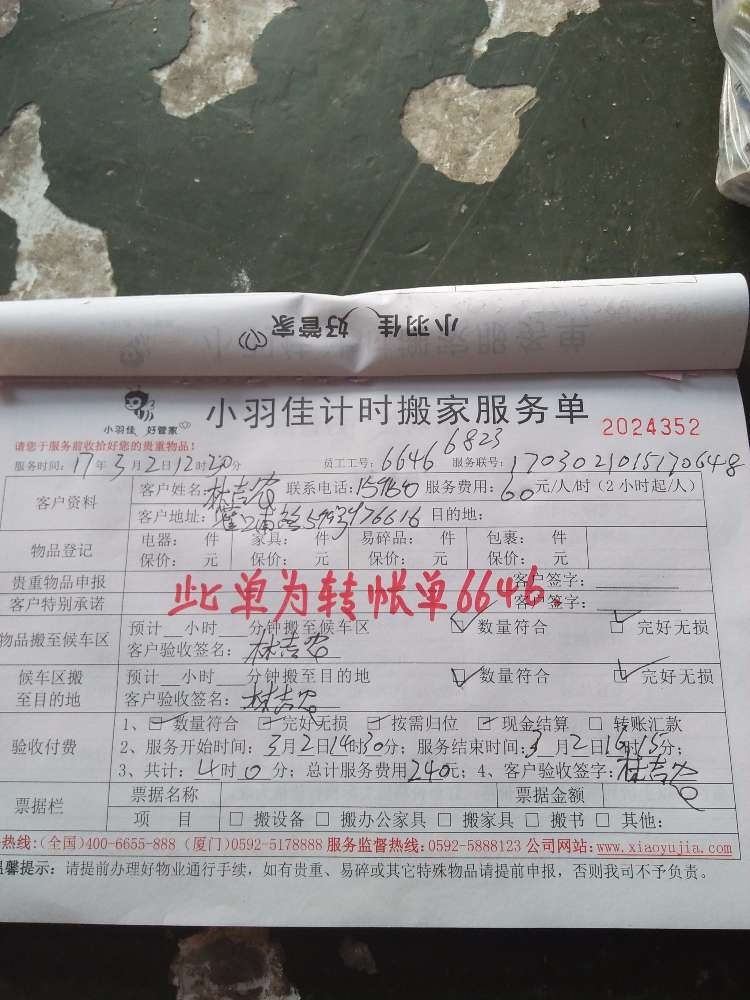 小羽佳 好管家
小羽佳 好管家
小羽佳计时搬家服务单
2024352
请您于服务前收拾好您的贵重物品!
服务时间: 17年3月2日12时20分 员工工号: 6646 6823 服务联号: 1703021015170648
客户资料
客户姓名: 林吉容 联系电话: 服务费用: 60元/人/时(2小时起/人)
客户地址: 目的地:
物品登记
电器: 件 家具: 件 易碎品: 件 包裹: 件
保价: 元 保价: 元 保价: 元 保价: 元
贵重物品申报 客户签字:
客户特别承诺 客户签字:
此单为转帐单6646.
物品搬至候车区
预计__小时__分钟搬至候车区 ☑数量符合 ☑完好无损
客户验收签名: 林吉容
候车区搬至目的地
预计__小时__分钟搬至目的地 ☑数量符合 ☑完好无损
客户验收签名: 林吉容
验收付费
1、☑数量符合 ☑完好无损 ☑按需归位 ☑现金结算 □转账汇款
2、服务开始时间: 3月2日14时30分; 服务结束时间: 3月2日16时15分;
3、共计: 4时0分; 总计服务费用240元; 4、客户验收签字: 林吉容
票据栏
票据名称 票据金额
项 目 □搬设备 □搬办公家具 □搬家具 □搬书 □其他:
热线:(全国)400-6655-888 (厦门)0592-5178888 服务监督热线:0592-5888123 公司网站:www.xiaoyujia.com
温馨提示: 请提前办理好物业通行手续, 如有贵重、易碎或其它特殊物品请提前申报, 否则我司不予负责。